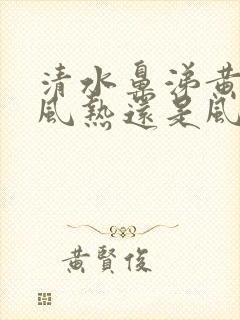 清水鼻涕黃
風熱還是風
黃賢俊